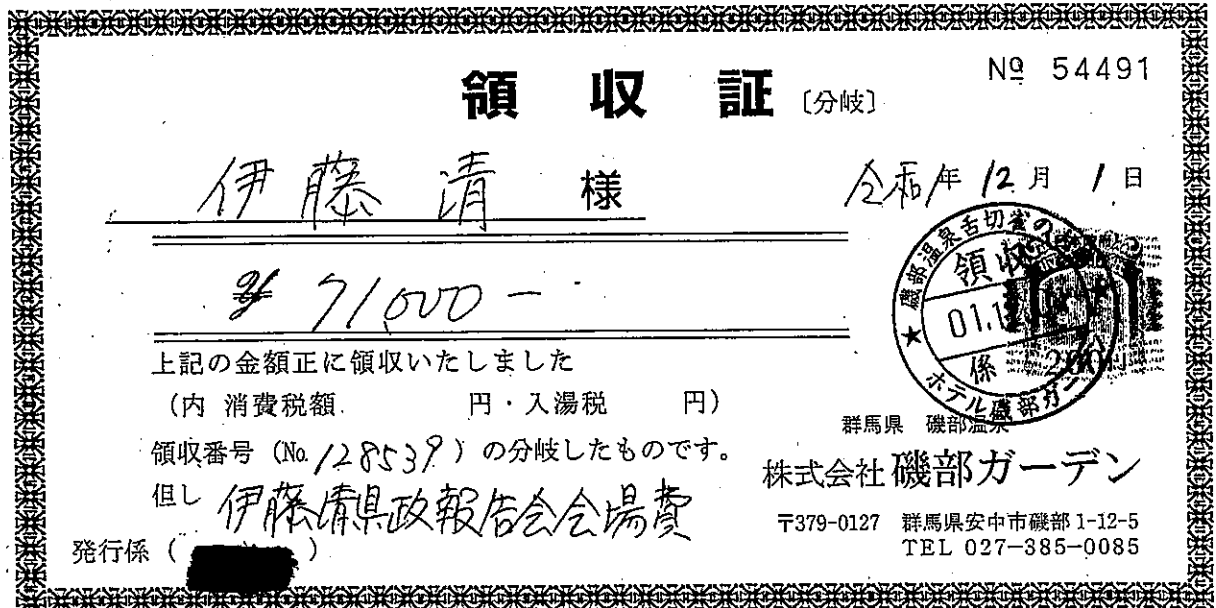 № 54491
領収証〔分岐〕
伊藤 清 様
令和1年12月1日
¥71,000-
上記の金額正に領収いたしました
(内 消費税額 円・入湯税 円)
領収番号 (No.128539) の分岐したものです。
但し 伊藤清県政報告会会場費
発行係 ( )
磯部温泉舌切雀の
領収
01.1
係
200
ホテル磯部ガーデン
群馬県 磯部温泉
株式会社 磯部ガーデン
〒379-0127 群馬県安中市磯部1-12-5
TEL 027-385-0085